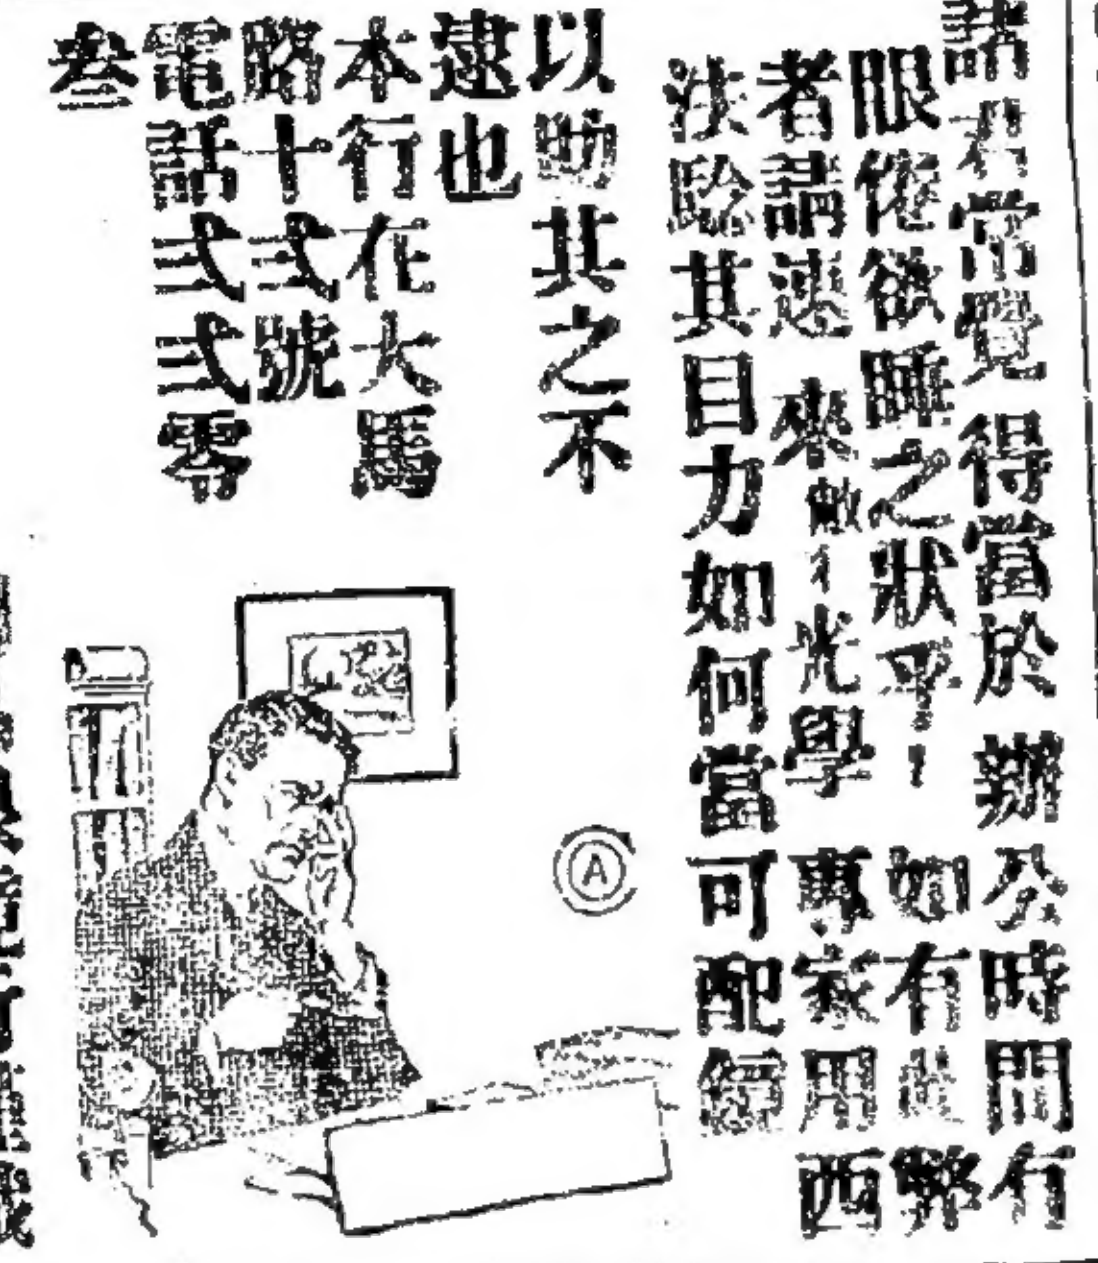 諸君常覺得當於辦公時間有
眼倦欲睡之狀乎!如有此弊
者請速來敝行光學專家用西
法驗其目力如何當可配鏡
以助其之不
逮也
本行在大馬
路十弍號
電話弍弍零
叁
A